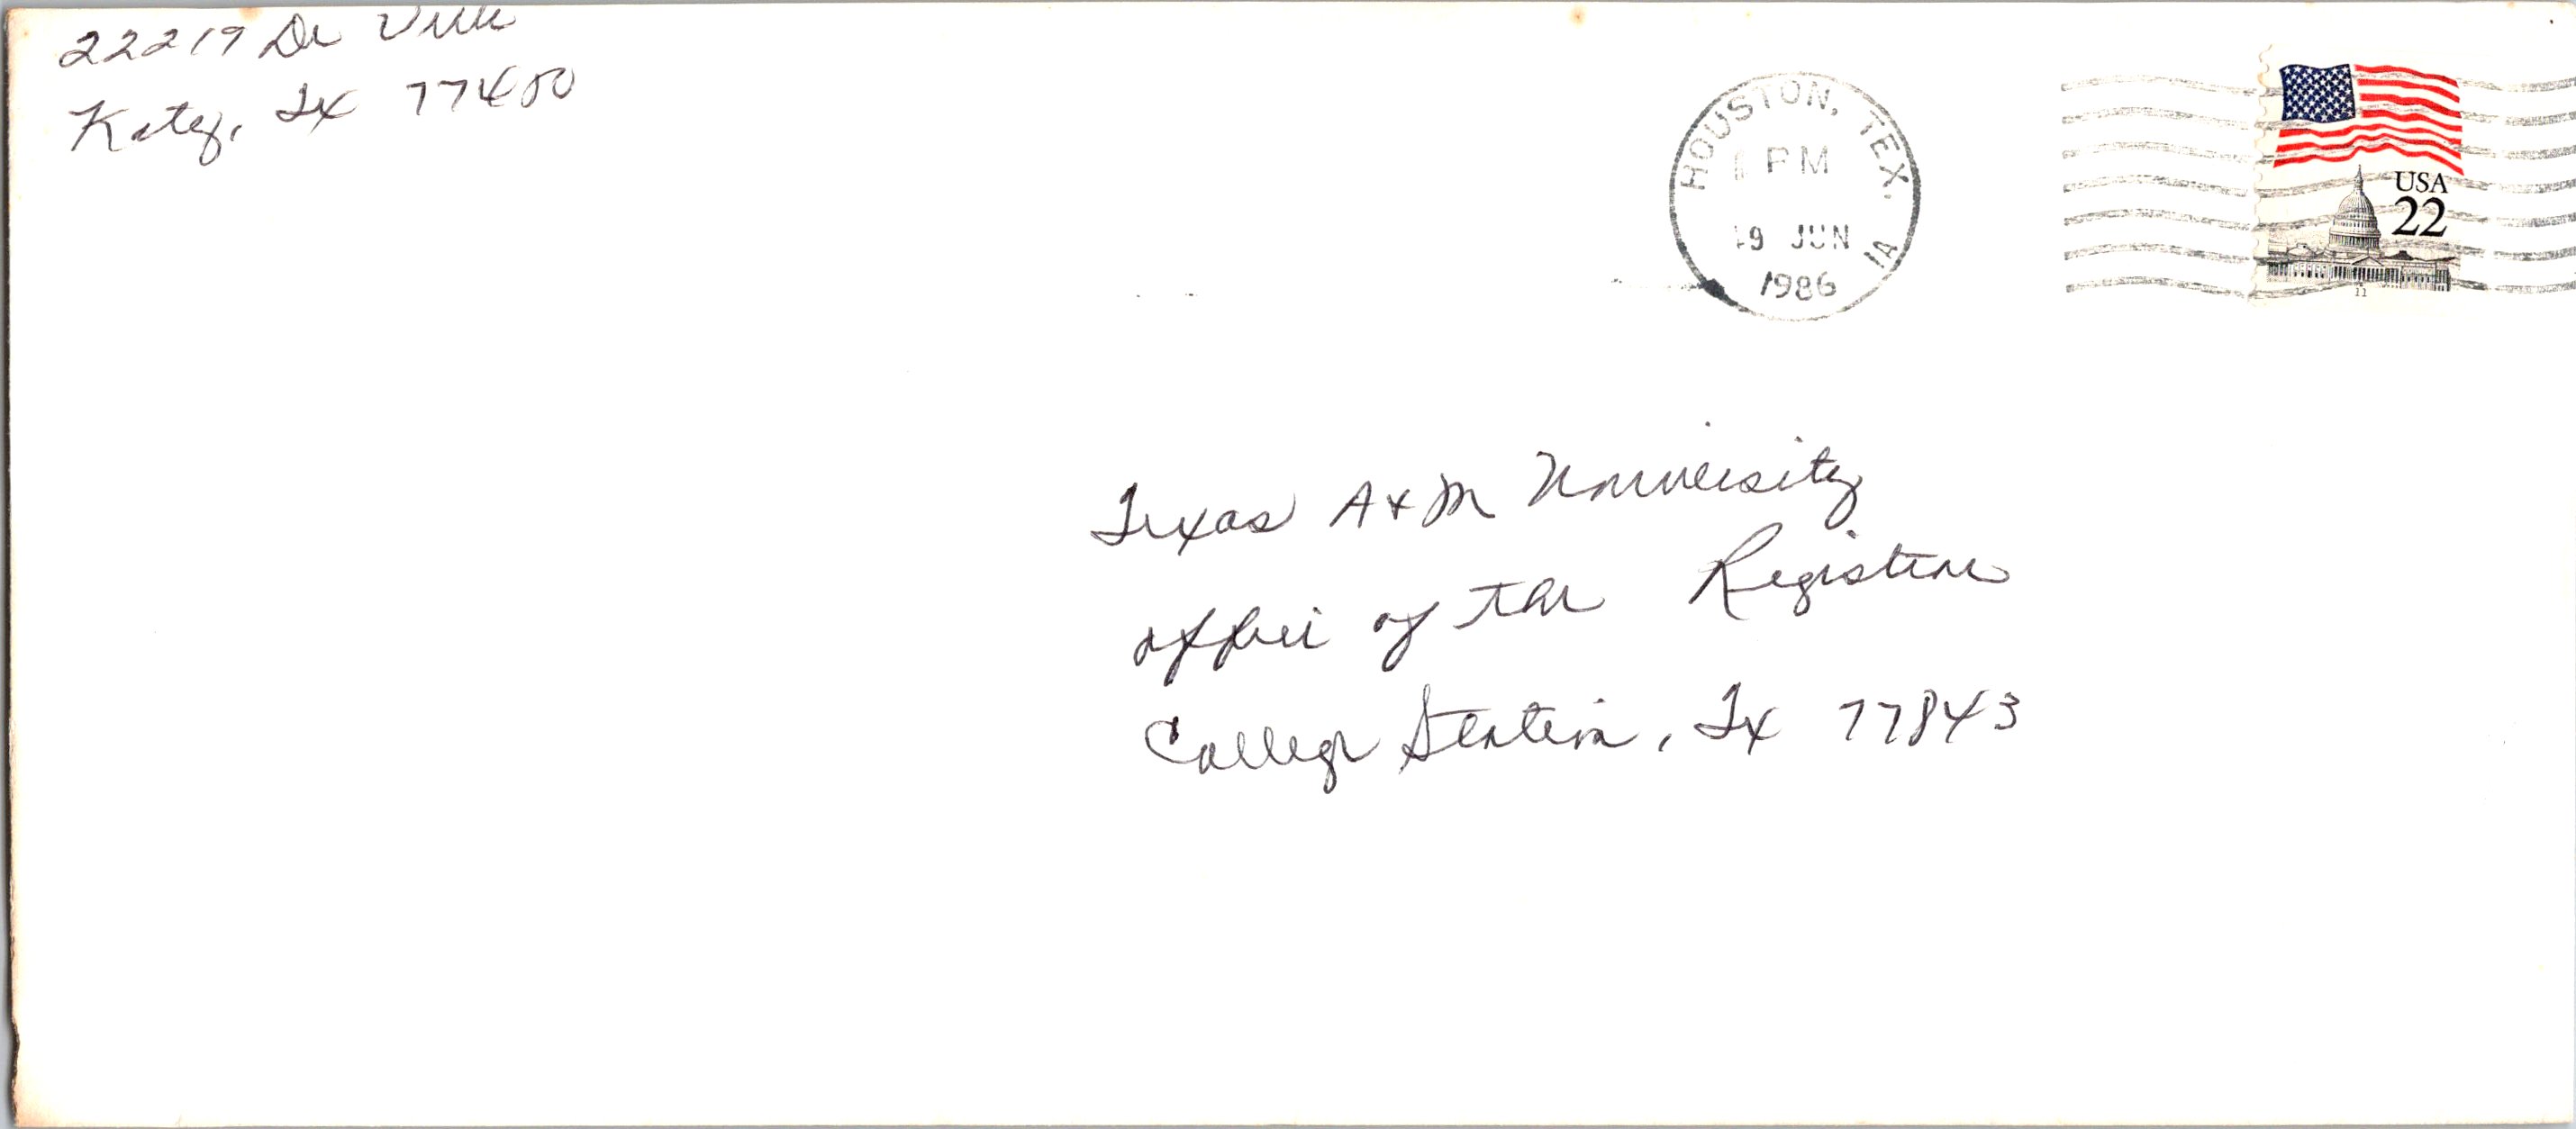 22219 De Ville
Katy, Tx 77450
HOUSTON, TEX.
PM
19 JUN
1986
1A
USA
22
11
Texas A+M University
office of the Registrar
College Station, Tx 77843